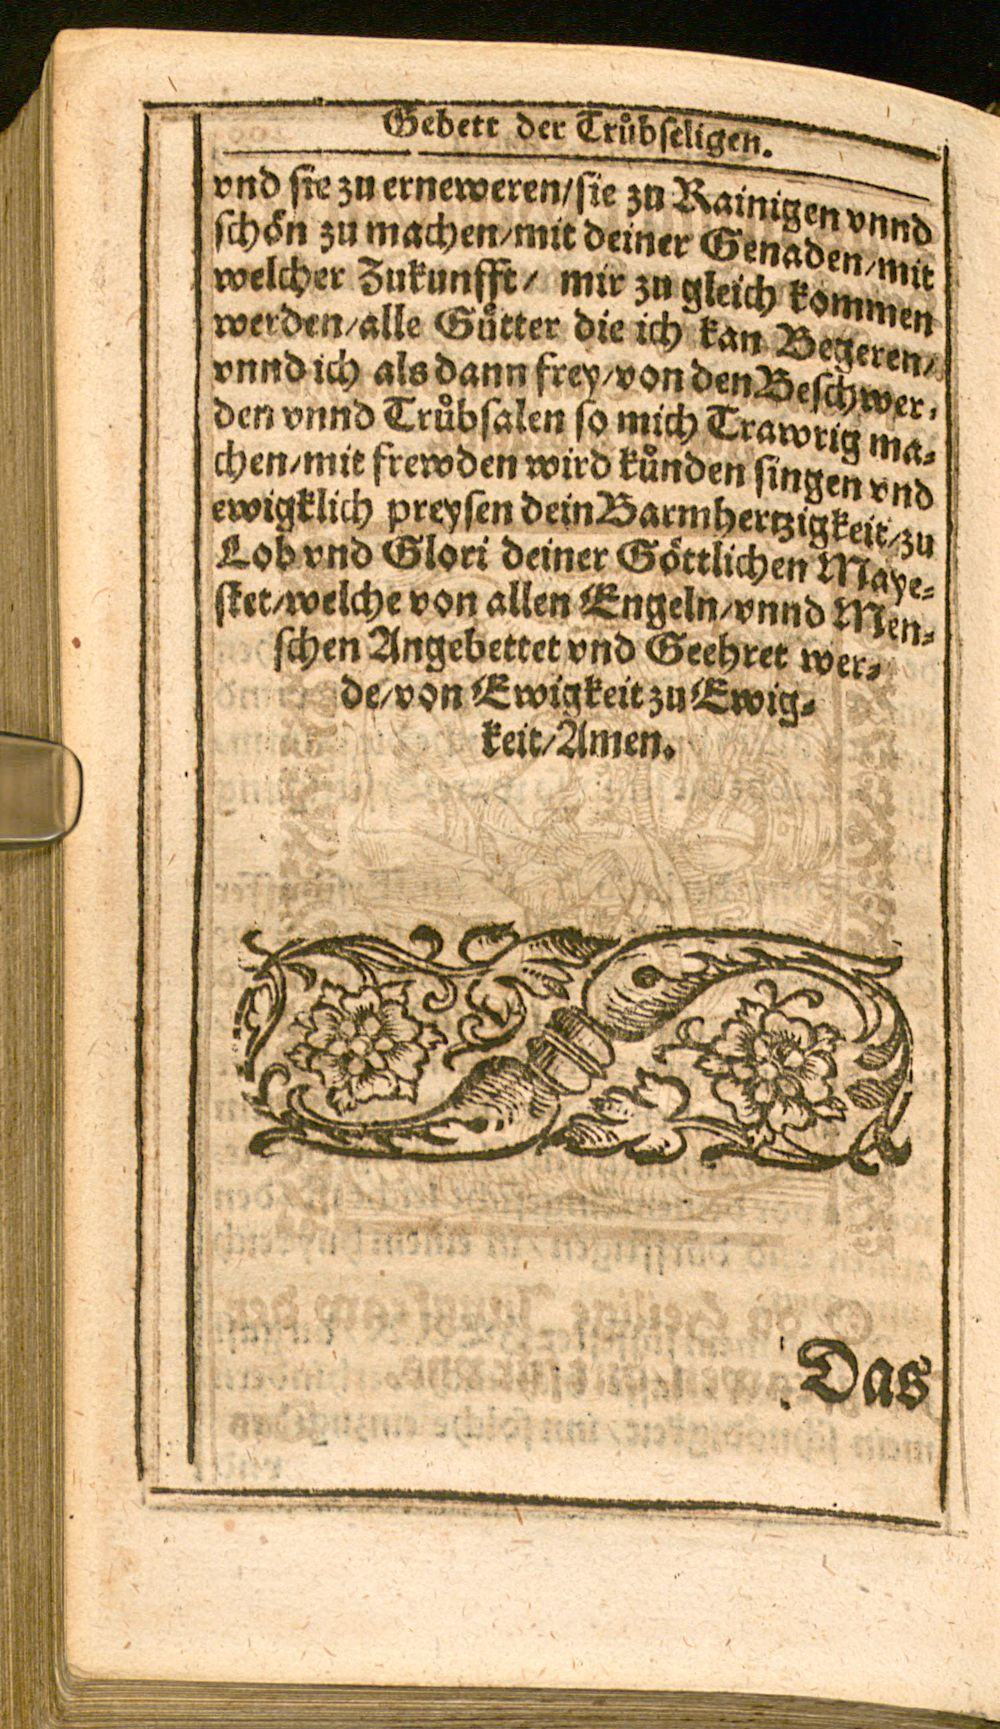 Gebett der Trůbseligen.
vnd sie zu erneweren/sie zu Rainigen vnnd
schön zu machen/mit deiner Genaden/mit
welcher Zukunfft/ mir zu gleich kommen
werden/alle Gůtter die ich kan Begeren/
vnnd ich als dann frey/von den Beschwer⸗
den vnnd Trůbsalen so mich Trawrig ma⸗
chen/mit frewden wird kůnden singen vnd
ewigklich preysen dein Barmhertzigkeit/zu
Lob vnd Glori deiner Göttlichen Maye⸗
stet/welche von allen Engeln/vnnd Men⸗
schen Angebettet vnd Geehret wer⸗
de/von Ewigkeit zu Ewig⸗
keit/Amen.
Das